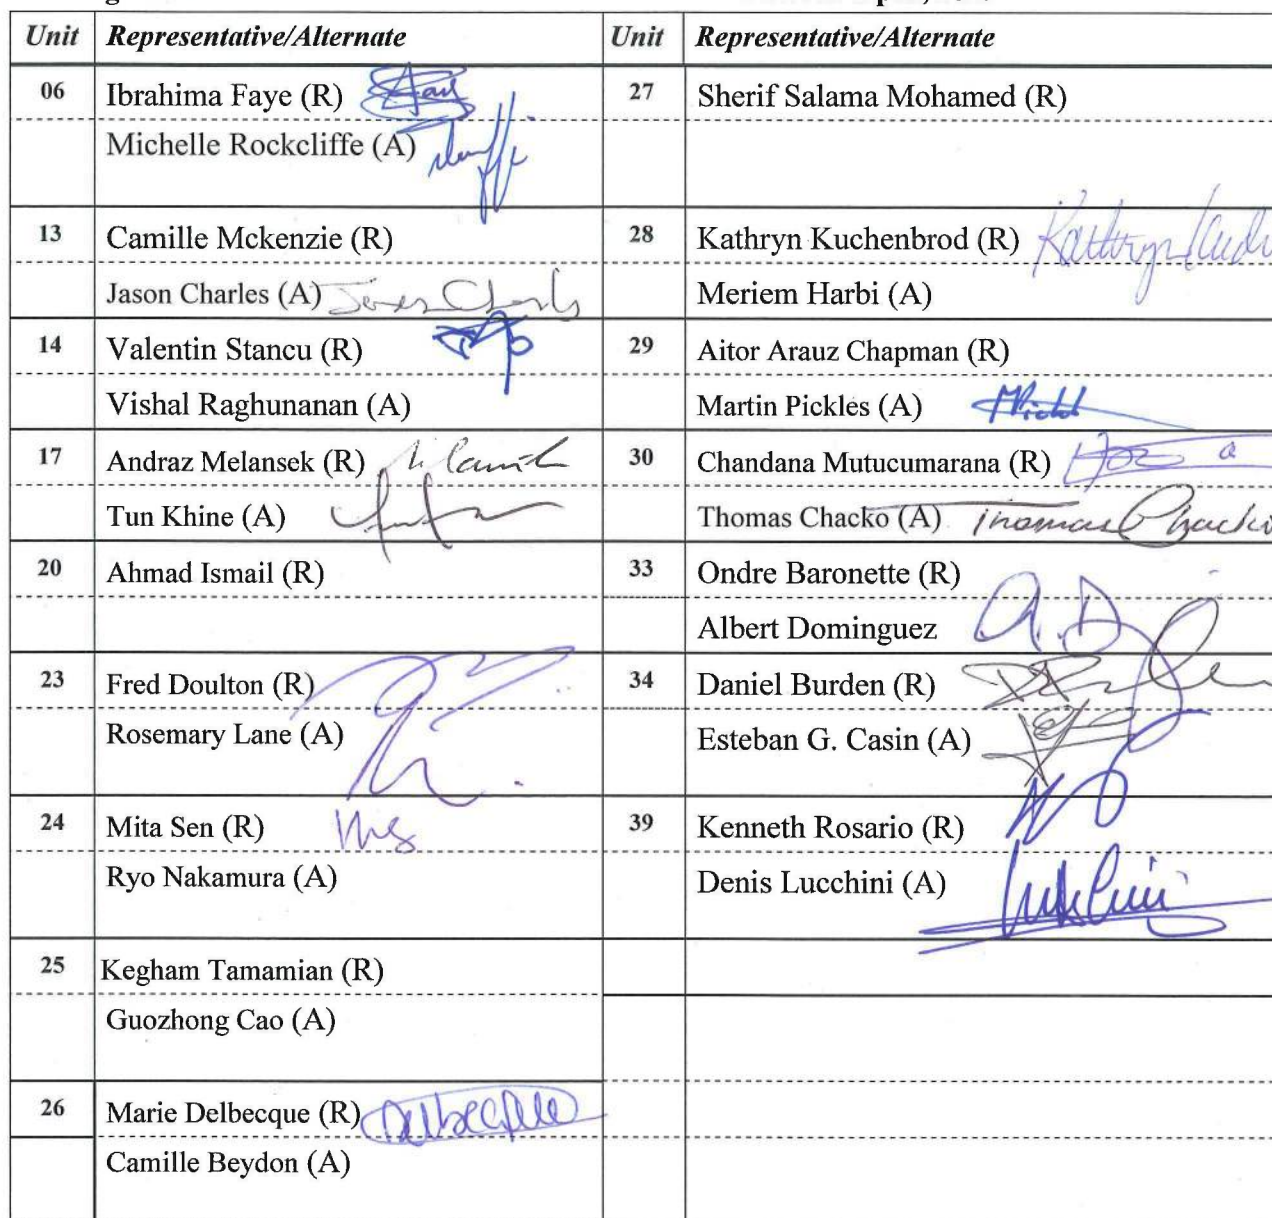 Unit Representative/Alternate Unit Representative/Alternate
06 Ibrahima Faye (R) 27 Sherif Salama Mohamed (R)
Michelle Rockcliffe (A)
13 Camille Mckenzie (R) 28 Kathryn Kuchenbrod (R)
Jason Charles (A) Meriem Harbi (A)
14 Valentin Stancu (R) 29 Aitor Arauz Chapman (R)
Vishal Raghunanan (A) Martin Pickles (A)
17 Andraz Melansek (R) 30 Chandana Mutucumarana (R)
Tun Khine (A) Thomas Chacko (A) Thomas Chacko
20 Ahmad Ismail (R) 33 Ondre Baronette (R)
Albert Dominguez A.D
23 Fred Doulton (R) 34 Daniel Burden (R)
Rosemary Lane (A) Esteban G. Casin (A)
24 Mita Sen (R) 39 Kenneth Rosario (R)
Ryo Nakamura (A) Denis Lucchini (A)
25 Kegham Tamamian (R)
Guozhong Cao (A)
26 Marie Delbecque (R) Delbecque
Camille Beydon (A)